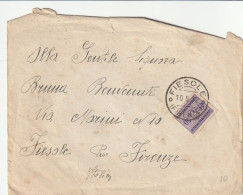 Alla Gentile Signora
Bruna Benvenuti
Via Marini
Fiesole per Firenze
Italia
FIESOLE